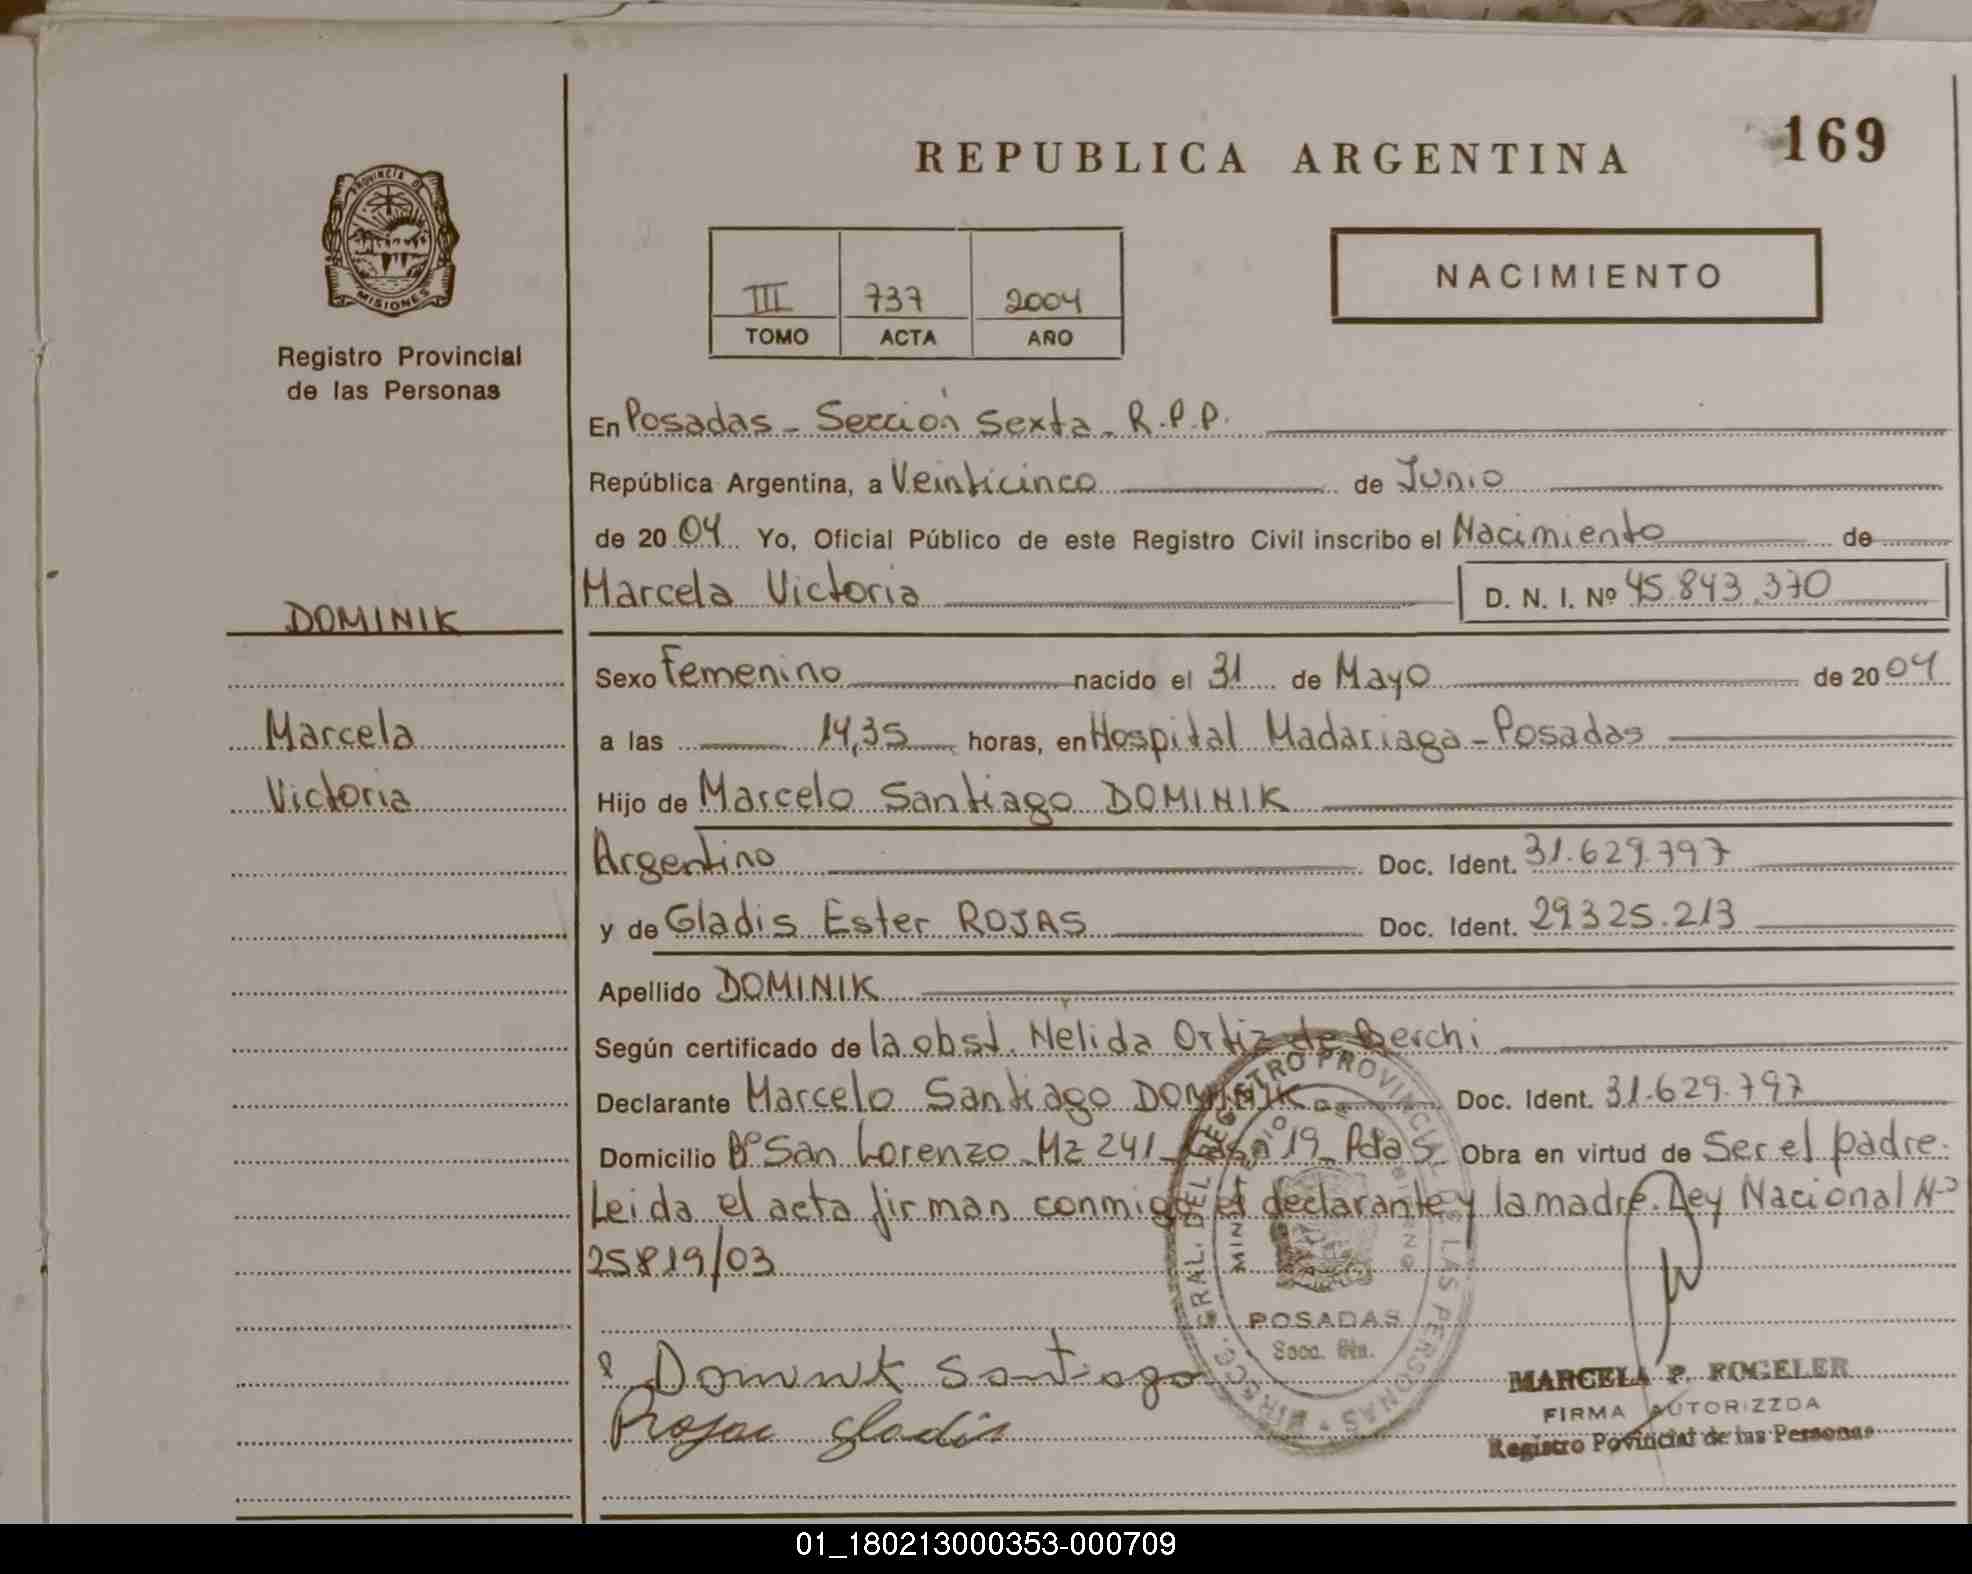 REPUBLICA ARGENTINA
169
PROVINCIA DE
MISIONES
Registro Provincial
de las Personas
III 737 2004
TOMO ACTA AÑO
NACIMIENTO
En Posadas - Sección Sexta - R.P.P.
República Argentina, a Veinticinco de Junio
de 2004 Yo, Oficial Público de este Registro Civil inscribo el Nacimiento de
Marcela Victoria D. N. I. Nº 45.843.370
DOMINIK
Sexo Femenino nacido el 31 de Mayo de 2004
Marcela
a las 14,35 horas, en Hospital Madariaga - Posadas
Victoria
Hijo de Marcelo Santiago DOMINIK
Argentino Doc. Ident. 31.629.797
y de Gladis Ester ROJAS Doc. Ident. 29325.213
Apellido DOMINIK
Según certificado de la obst. Nelida Ortiz de Berchi
Declarante Marcelo Santiago DOMINIK Doc. Ident. 31.629.797
Domicilio Bº San Lorenzo - Mz 241 - Casa 19 - Pdas Obra en virtud de Ser el padre.
Leida el acta firman conmigo el declarante y la madre. Ley Nacional Nº
25819/03
GRAL. DEL REGISTRO PROVINCIAL DE LAS PERSONAS
POSADAS
Secc. 6ta.
Dominik Santiago
Rojas Gladis
MARCELA P. ROGELER
FIRMA AUTORIZZDA
Registro Povincial de las Personas
01_180213000353-000709